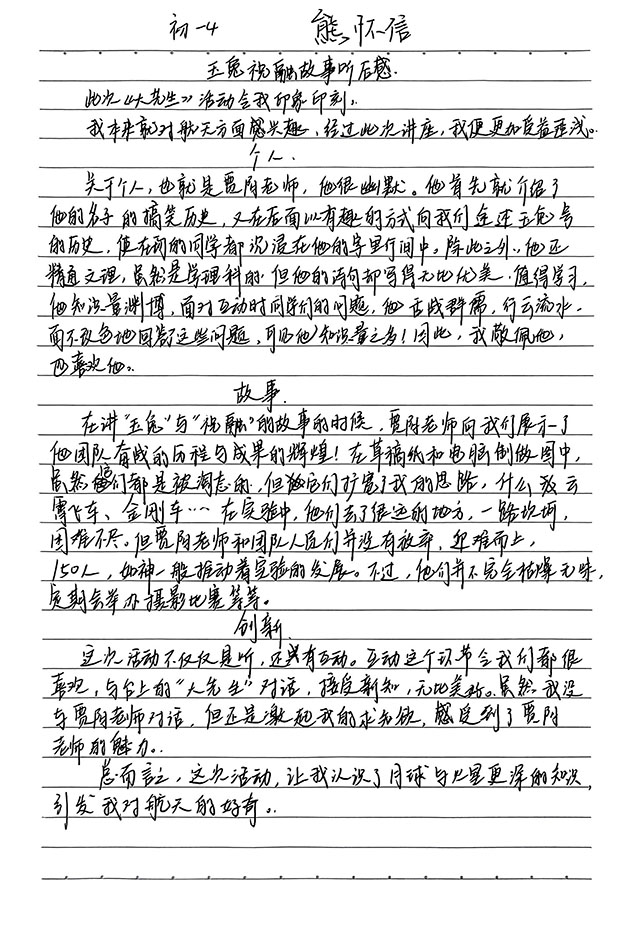 初一4 熊怀信
玉兔祝融故事听后感.
此次《大先生》活动令我印象印刻.
我本来就对航天方面感兴趣,经过此次讲座,我便更加受益匪浅.
个人.
关于个人,也就是贾阳老师,他很幽默。他首先就介绍了
他的名字的搞笑历史,又在后面以有趣的方式向我们企还玉兔号
的历史,使在场的同学都沉浸在他的字里行间中。除此之外,他还
精通文理,虽然是学理科的,但他的语句却写得无比优美,值得学习,
他知识量渊博,面对互动时同学们的问题,他舌战群儒,行云流水,
面不改色地回答这些问题,可见他知识量之多!因此,我敬佩他,
也喜欢他.
故事.
在讲“玉兔”与“祝融”的故事的时候,贾阳老师向我们展示了
他团队奋战的历程与成果的辉煌!在草稿纸和电脑制做图中,
虽然它们都是被淘态的,但它们扩宽了我的思路,什么
车、金刚车…在实验中,他们去了很远的地方,一路坎坷,
困难不尽。但贾阳老师和团队人员们并没有放弃,迎难而上,
150人,如神一般推动着实验的发展。不过,他们并不完全枯燥无味,
定期会举办摄影比赛等等。
创新.
这次活动不仅仅是听,还具有互动。互动这个环节令我们都很
喜欢,与台上的“大先生”对话,接受新知,无比美称。虽然我没
与贾阳老师对话,但还是激起我的求知欲,感受到了贾阳
老师的魅力.
总而言之,这次活动,让我认识了月球与火星更深的知识,
引发我对航天的好奇.